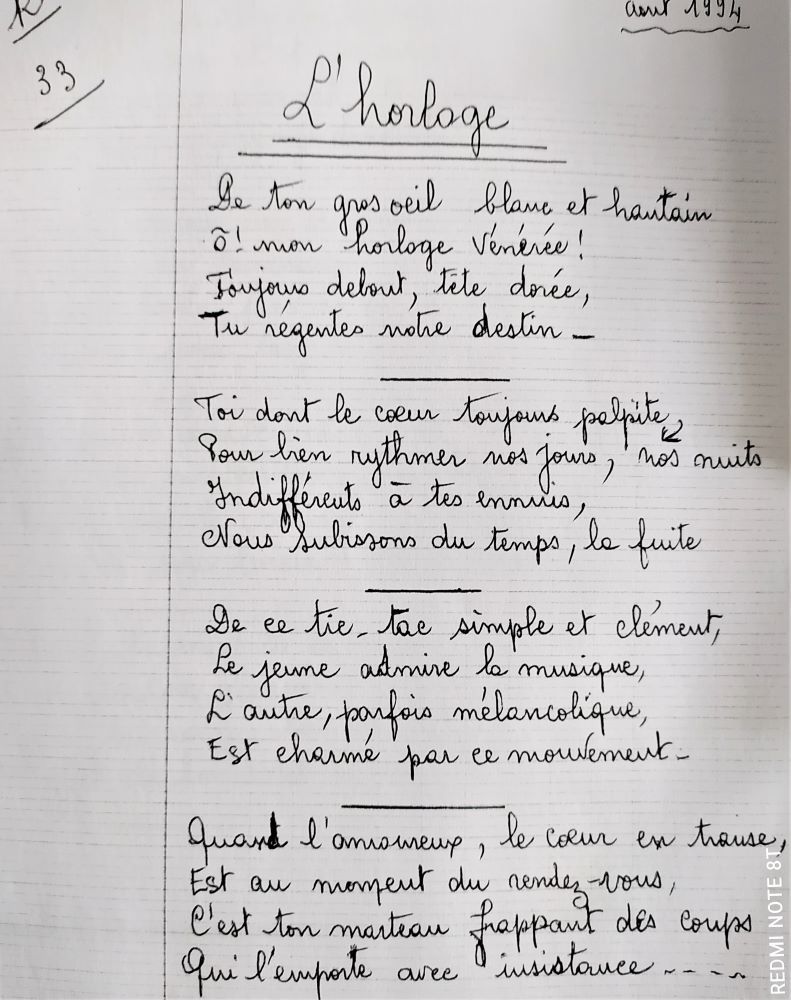 Août 1994
33
L'horloge
De ton gros oeil blanc et hautain
Ô! mon horloge vénérée!
Toujours debout, tête dorée,
Tu régentes notre destin _
Toi dont le coeur toujours palpite,
Pour bien rythmer nos jours, nos nuits
Indifférents à tes ennuis,
Nous subissons du temps, la fuite
De ce tic-tac simple et clément,
Le jeune admire la musique,
L'autre, parfois mélancolique,
Est charmé par ce mouvement _
Quand l'amoureux, le coeur en transe,
Est au moment du rendez-vous,
C'est ton marteau frappant des coups
Qui l'emporte avec insistance ----
REDMI NOTE 8T